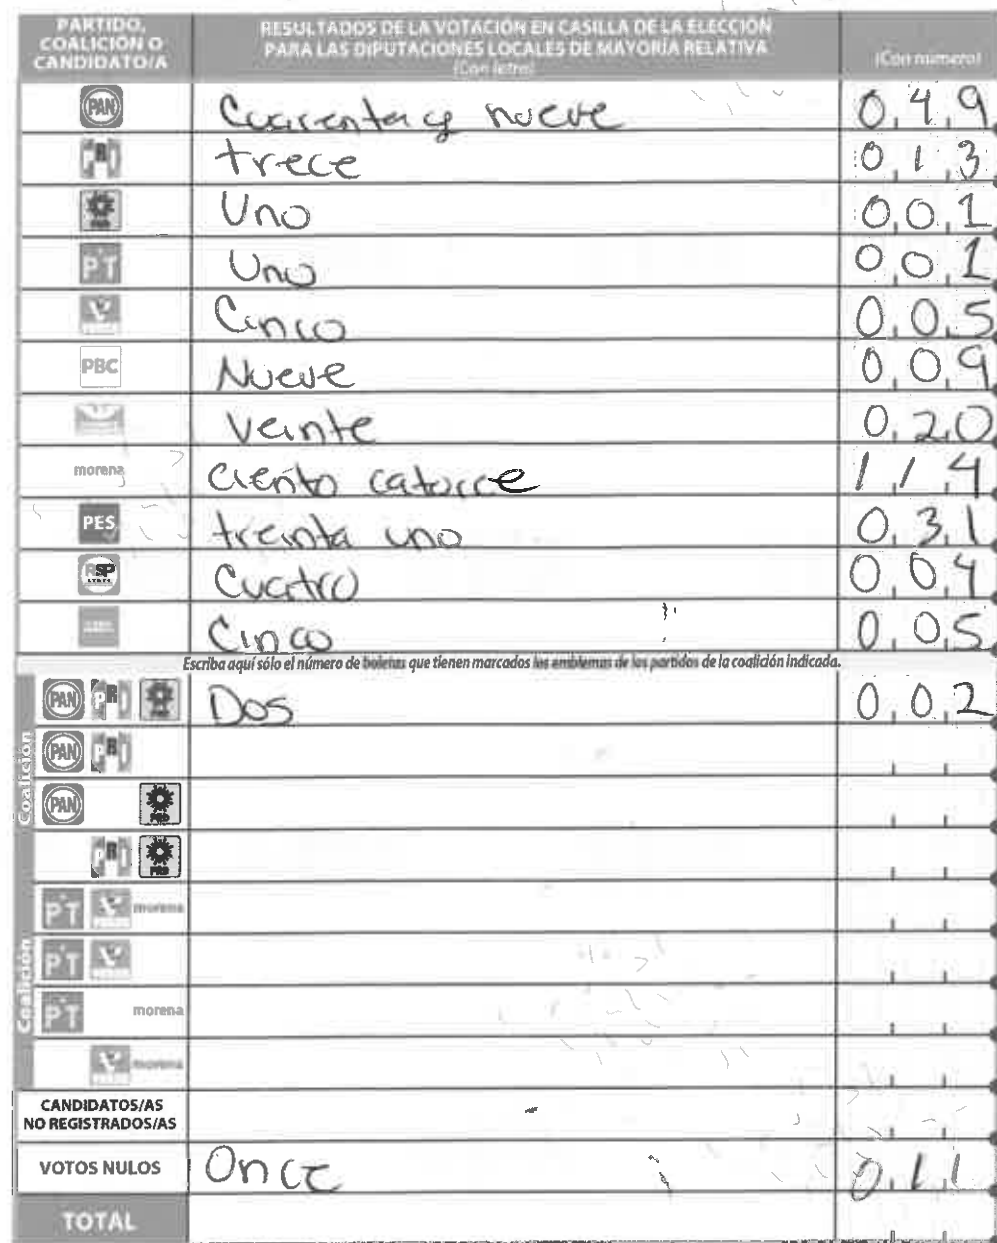 PARTIDO, COALICIÓN O CANDIDATO/A
RESULTADOS DE LA VOTACIÓN EN CASILLA DE LA ELECCIÓN PARA LAS DIPUTACIONES LOCALES DE MAYORÍA RELATIVA
(Con letra)
(Con número)
PAN Cuarenta y nueve 0 4 9
PRI trece 0 1 3
PRD Uno 0 0 1
PT Uno 0 0 1
VERDE Cinco 0 0 5
PBC Nueve 0 0 9
Veinte 0 2 0
morena ciento catorce 1 1 4
PES treinta uno 0 3 1
RSP Cuatro 0 0 4
Cinco 0 0 5
Escriba aquí sólo el número de boletas que tienen marcados los emblemas de los partidos de la coalición indicada.
Coalición
PAN PRI PRD Dos 0 0 2
PAN PRI
PAN PRD
PRI PRD
Coalición
PT VERDE morena
PT VERDE
PT morena
VERDE morena
CANDIDATOS/AS NO REGISTRADOS/AS
VOTOS NULOS Once 0 1 1
TOTAL